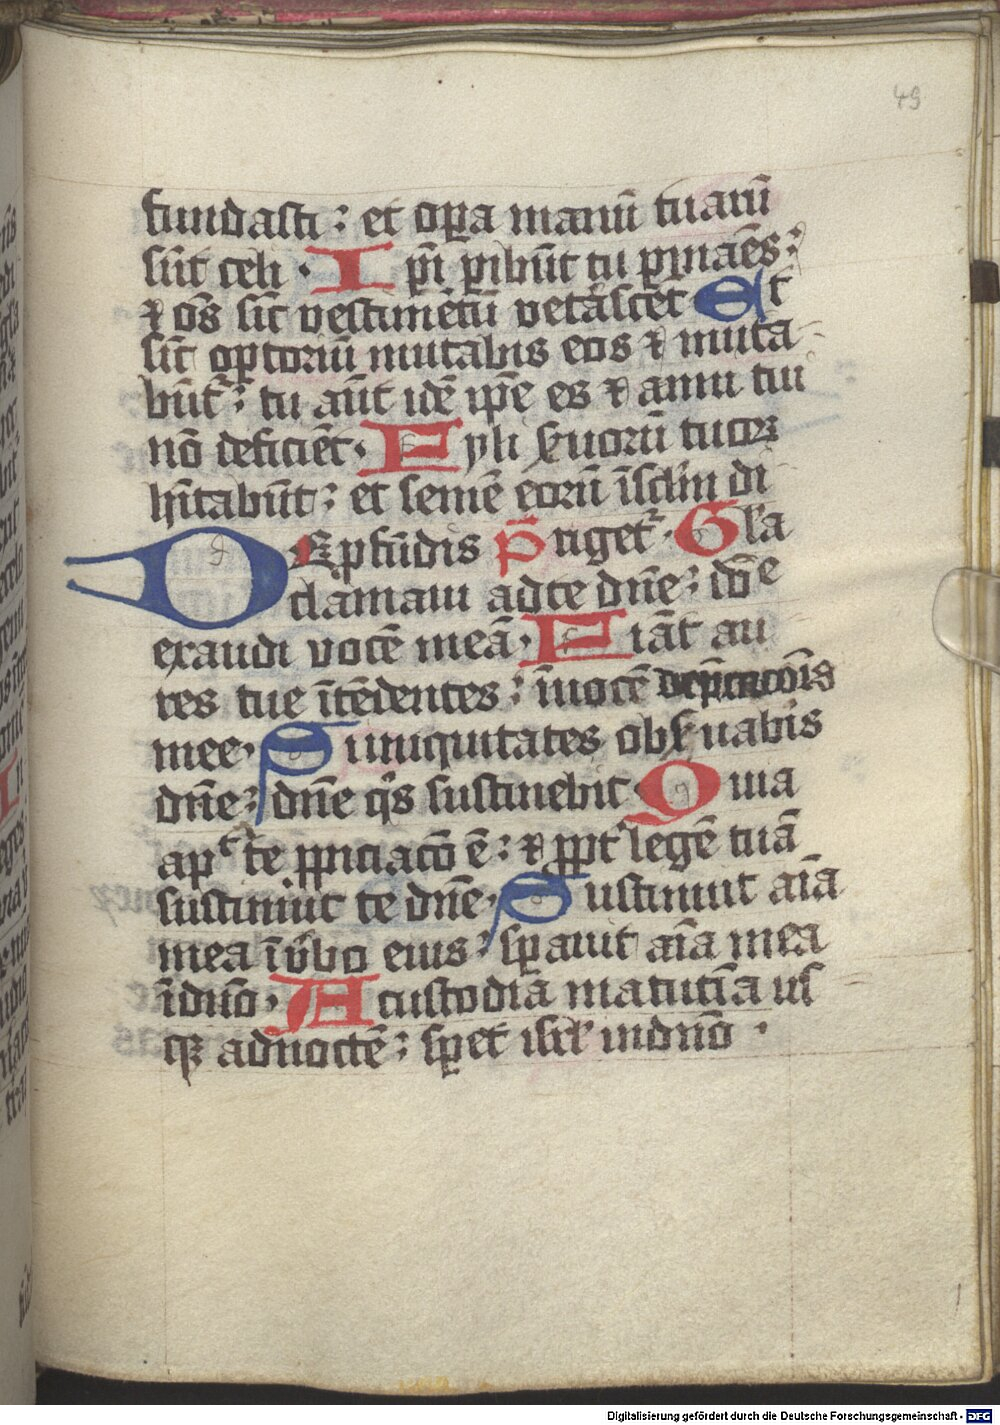 49
fundasti : et opa manuū tuarū
sūt celi · Ipi pibūt tu pmanēs :
⁊ oēs sic̄ vestimētū vetāscēt Et
sic̄ optoriū mutabis eos ⁊ muta
būt᷑ : tu aūt idē ip̄e es ⁊ anni tui
nō deficiēt · Fylii ẜuorū tuoꝝ
hītabūt : et semē eorū ī scl̄m di
riget᷑ · Gl̄a pr̄i
DE pfūdis
clamaui ad te dn̄e : dn̄e
exaudi vocē meā · Fiāt au
res tue ītēdentes : ī uocē depc̄acōis
mee · Si iniquitates obẜuabis
dn̄e : dn̄e qͥs sustinebit · Quia
apᵗ te ppiciacō ē : ⁊ ppt̄ legē tuā
sustinui te dn̄e · Sustinuit aīa
mea ī v̄bo eius : spauit aīa mea
ī dn̄o · A custodia matutīa us
qꝫ ad noctē : spet isrl̄ in dn̄o ·
Digitalisierung gefördert durch die Deutsche Forschungsgemeinschaft - DFG